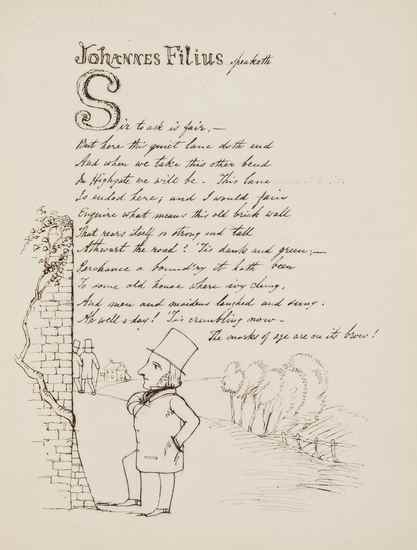 Johannes Filius speaketh
Sir to ask is fair,—
But here this quiet lane doth end
And when we take this other bend
In Highgate we will be. This lane
Is ended here; and I would fain
Enquire what means this old brick wall
That rears itself so strong and tall
Athwart the road? 'Tis dank and green;—
Perchance a bound'ry it hath been
To some old house where ivy clung,
And men and maidens laughed and sung.
Ah well a day! 'Tis crumbling now—
The marks of age are on its brow!